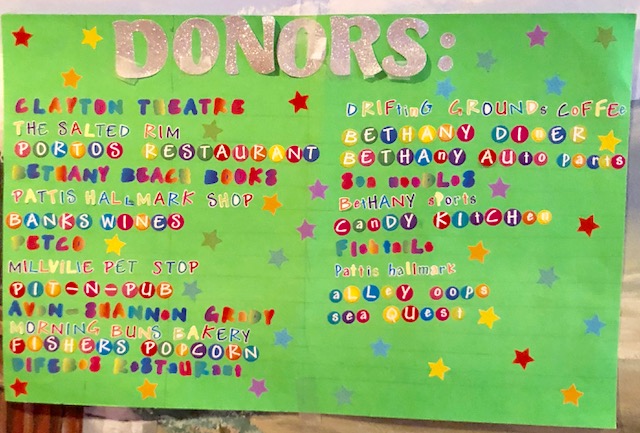 DONORS:
CLAYTON THEATRE
THE SALTED RIM
PORTOS RESTAURANT
BETHANY BEACH BOOKS
PATTIS HALLMARK SHOP
BANKS WINES
PETCO
MILLVILLE PET STOP
PIT-N-PUB
AVON-SHANNON GRODY
MORNING BUNS BAKERY
FISHERS POPCORN
DIFEBOS RESTAURANT
DRIFting GROUNDs COFFEe
BETHANY DINER
BETHANy Auto parts
BetHANY sports
CaNDY KITCHen
Fishtails
Pattis hallmark
aLLey oops
sea Quest